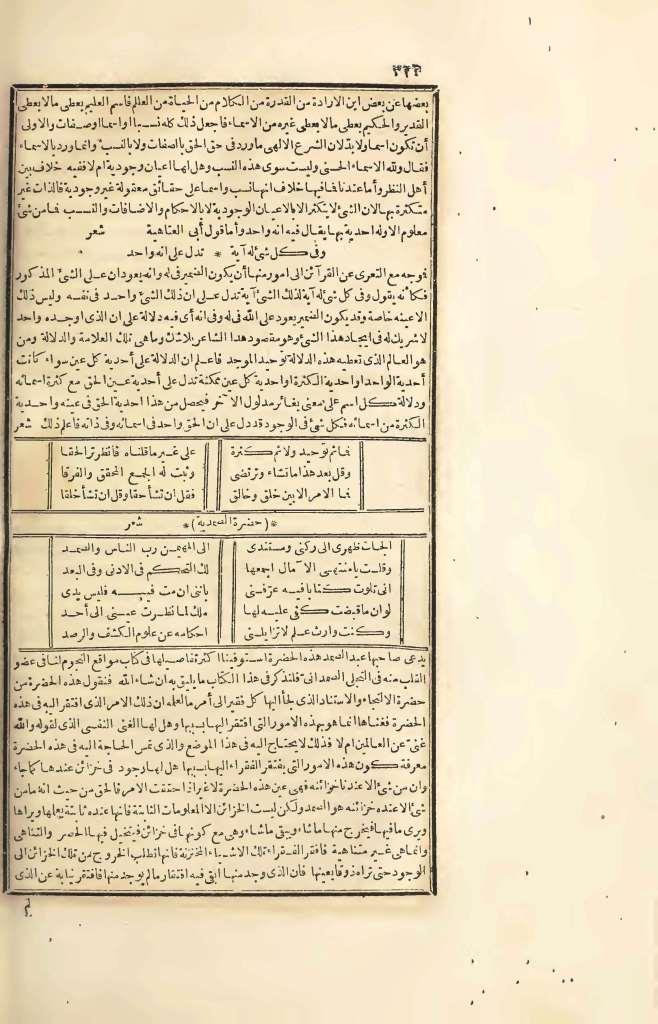 بعضها عن بعض اين الارادة من القدرة من الكلام من الحياة من العلم فاسم العليم يعطى ما لا يعطى
القدير والحكيم يعطى ما لا يعطى غيره من الاسماء فاجعل ذلك كله نسبا او اسماء او صفات والاولى
أن تكون اسماء ولا بد لان الشرع الالهى ما ورد فى حق الحق بالصفات ولا بالنسب وانما ورد بالاسماء
فقال ولله الاسماء الحسنى وليست سوى هذه النسب وهل لها اعيان وجودية ام لا ففيه خلاف بين
أهل النظر وأما عندنا فما فيها خلاف انها نسب واسماء على حقائق معقولة غير وجودية فالذات غير
متكثرة بها لان الشئ لا يتكثر الا بالاعيان الوجودية لا بالاحكام والاضافات والنسب فما من شئ
معلوم الا وله احدية بها يقال فيه انه واحد وأما قول أبى العتاهية شعر
وفى كل شئ له آية * تدل على انه واحد
فوجه مع التعرى عن القرآئن الى امور منها أن يكون الضمير فى له وانه يعودان على الشئ المذكور
فكأنه يقول وفى كل شئ له آية لذلك الشئ آية تدل على ان ذلك الشئ واحد فى نفسه وليس ذلك
الا عينه خاصة وقد يكون الضمير يعود على الله فى له وفى انه أى فيه دلالة على ان الذى اوجده واحد
لا شريك له فى ايجاد هذا الشئ وهو مقصود هذا الشاعر بلا شك وما هى تلك العلامة والدلالة ومن
هو العالم الذى تعطيه هذه الدلالة توحيد الموجد فاعلم ان الدلالة على أحدية كل عين سواء كانت
أحدية الواحد او احدية الكثرة او احدية كل عين ممكنة تدل على أحدية عين الحق مع كثرة اسمائه
ودلالة كل اسم على معنى يغاير مدلول الآخر فيحصل من هذا احدية الحق فى عينه واحدية
الكثرة من اسمائه فكل شئ فى الوجود قد دل على ان الحق واحد فى اسمائه وفى ذاته فاعلم ذلك شعر
فما ثم توحيد ولا ثم كثرة على غير ما قلناه فانظر تر الحقا
وقل بعد هذا ما تشاء وترتضى وثبت له الجمع المحقق والفرقا
فما الامر الا بين خلق وخالق فقل ان تشأ حقا وقل ان تشأ خلقا
* (حضرة الصمدية) * شعر
الجات ظهرى الى ركنى ومستندى الى المهيمن رب الناس والصمد
وقلت يا منتهى الآمال اجمعها لك التحكم فى الادنى وفى البعد
انى تلوت كتابا فيه عرفنى بانى ان مت فيه فليس يدى
لو ان ما قبضت كفى عليه لها ملك لما نظرت عينى الى أحد
وكنت وارث علم لا تزايلنى احكامه عن علوم الكشف والرصد
يدعى صاحبها عبد الصمد هذه الحضرة استوفينا اكثر تفاصيلها فى كتاب مواقع النجوم لنا فى عضو
القلب منه فى التجلى الصمدانى فلنذكر فى هذا الكتاب ما يليق به ان شاء الله فنقول هذه الحضرة من
حضرة الالتجاء والاستناد الذى لجأ اليها كل فقير الى أمر ما لعلمه ان ذلك الامر الذى افتقر اليه فى هذه
الحضرة فغناها انما هو بهذه الامور التى افتقر اليها بسببها وهل لها الغنى النفسى الذى لقوله والله
غنى عن العالمين ام لا فذلك لا يحتاج اليه فى هذا الموضع والذى تمس الحاجة اليه فى هذه الحضرة
معرفة كون هذه الامور التى يفتقر الفقراء اليها بسببها هل لها وجود فى خزائن عندها كما جاء
وان من شئ الا عندنا خزائنه فهى عين هذه الحضرة لا غير اذا حققت الامر فالحق من حيث انه ما من
شئ الا عنده خزائنه هو الصمد ولكن ليست الخزائن الا المعلومات الثابتة فانها عنده ثابتة يعلمها ويراها
ويرى ما فيها فيخرج منها ما شاء ويبقى ما شاء وهى مع كونها فى خزائن فيتخيل فيها الحصر والتناهى
وانما هى غير متناهية فافتقر الفقراء تلك الاشياء المختزنة فانها تطلب الخروج من تلك الخزائن الى
الوجود حتى تراه ذوقا بعينها فان الذى وجد منها ابقى فيه افتقار ما لم يوجد منها فافتقر نيابة عن الذى